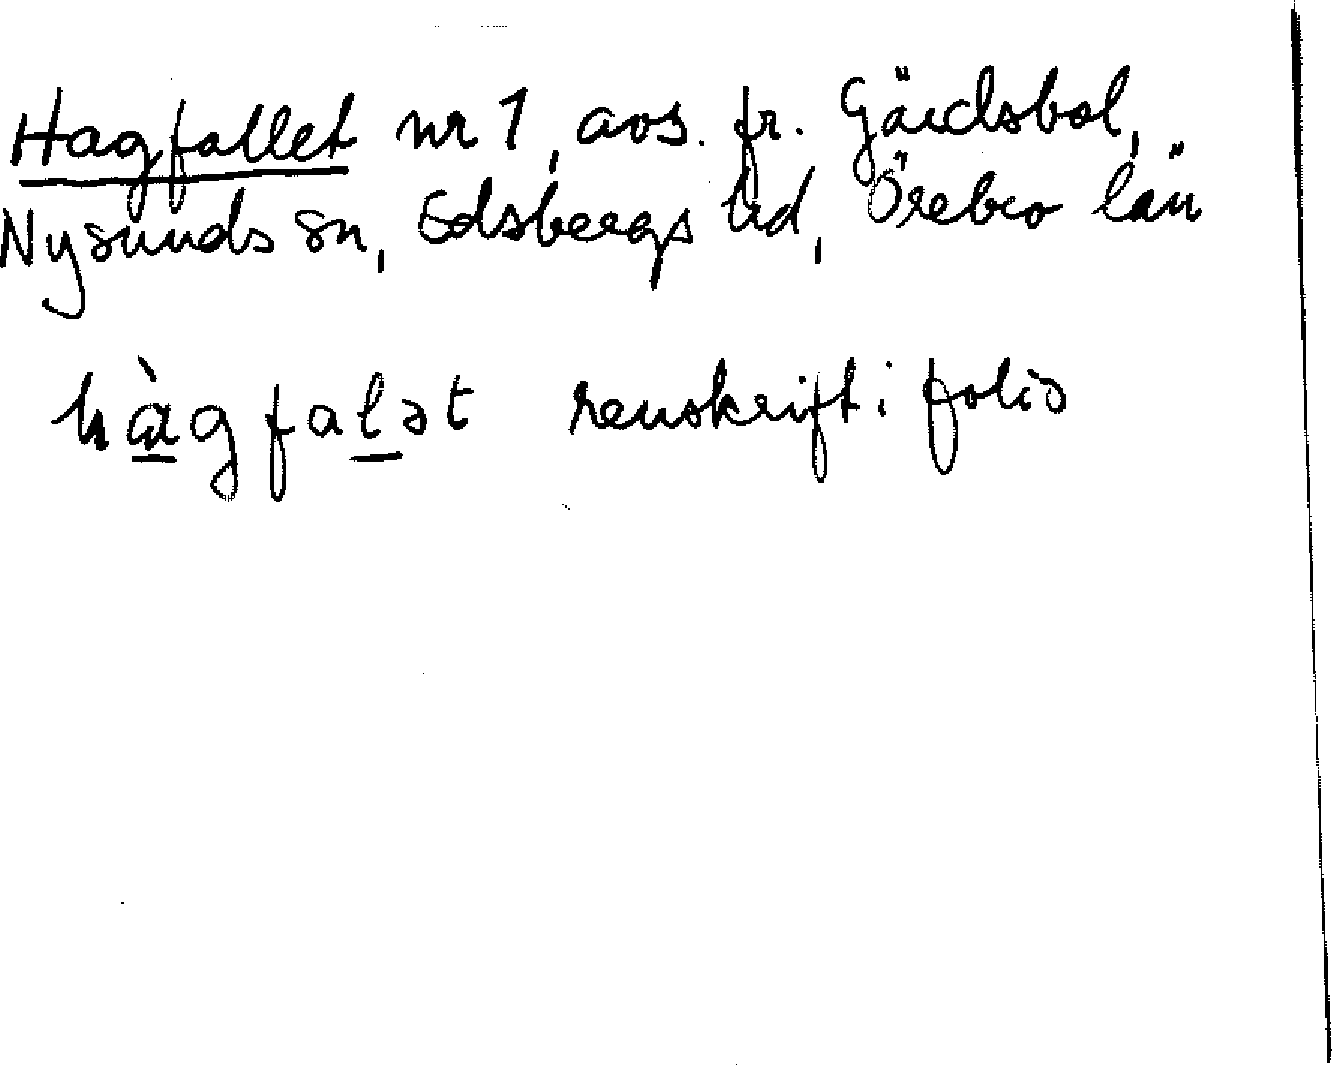 Hagfallet nr 1, avs. fr. Gärdsbol,
Nysunds sn, Edsbergs hd, Örebro län
hàgfalət renskrift i folio